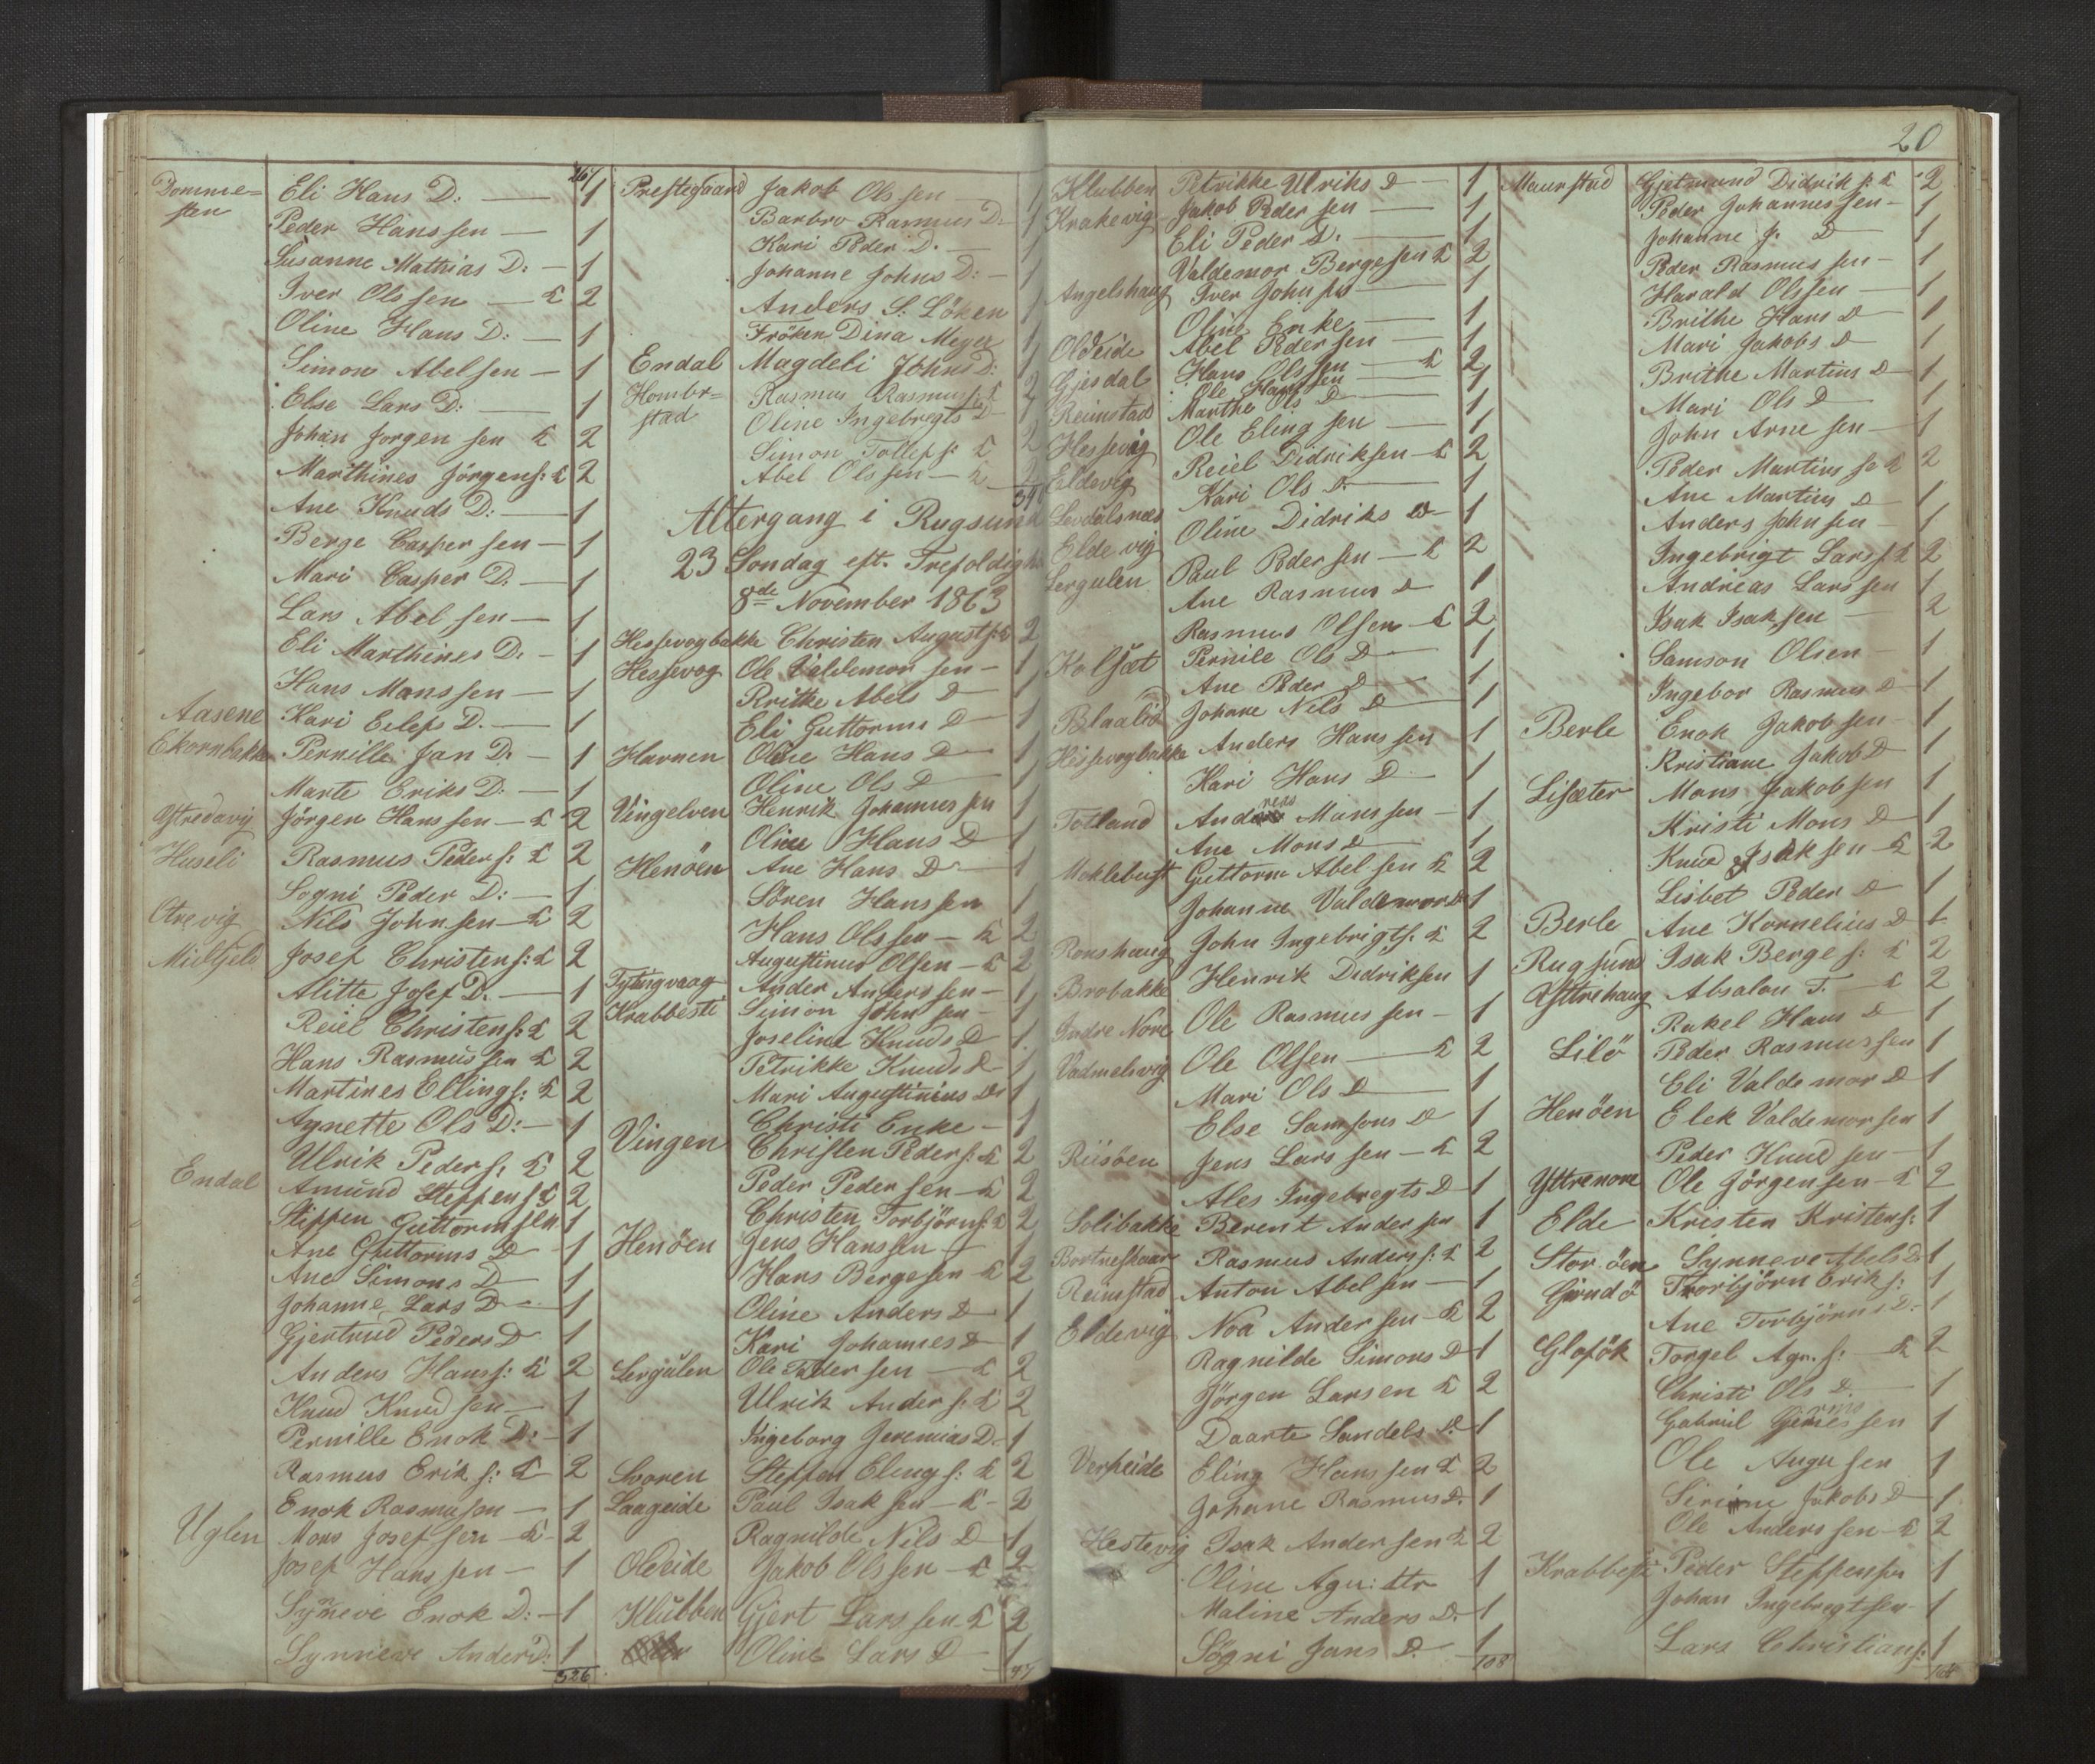 20
267
Domme=
sten
Eli Hans D: — 1
Peder Hanssen — 1
Susanne Mathias D: — 1
Iver Olssen — K 2
Oline Hans D: — 1
Simon Abelsen — 1
Else Lars D: — 1
Johan Jorgensen K 2
Marthines Jörgens: K 2
Ane Knuds D: — 1
Berge Caspersen — 1
Mari Casper D. — 1
Lars Abelsen — 1
Eli Marthines D: — 1
Hans Monssen — 1
Aasene Kari Eilefs D. — 1
Ekornbakke Pernille Jan D: — 1
Marte Eriks D: — 1
Ytredavig Jörgen Hanssen — K 2
Huseli Rasmus Peders: K 2
Sogni Peder D: — 1
Otrevig Nils Johnsen — K 2
Midtfjeld Josef Christens: K 2
Alitte Josef D. — 1
Reiel Christens: K 2
Hans Rasmussen K 2
Martines Ellings: K 2
Agnette Ols D: — 1
Ulrik Peders: K 2
Endal Amund Steffens K 2
Steffen Guttormsen 1
Ane Guttorms D — 1
Ane Simons D — 1
Johanne Lars D — 1
Gjertrud Peders D 1
Anders Hanss: K 2
Knud Knudsen — 1
Pernille Enok D: — 1
Rasmus Eriks: K 2
Enok Rasmuson — 1
Uglen Mons Josefsen — K 2
Josef Hanssen — 1
Synneve Enok D: — 1
Synneve Ander D: 1
326
Prestegaard Jakob Olssen — 1
Barbro Rasmus D. 1
Kari Peder D. — 1
Johanne Johns D: — 1
Anders S. Löken 1
Fröken Dina Meyer 1
Endal Magdeli Johns D: 1
Hombr=
stad
Rasmus Rasmuss: K 2
Oline Ingebregts D 1
Simon Tollefs: K 2
Abel Olssen — K 2
Altergang i Rugsund
23 Søndag eft. Trefoldigh.
8de November 1863
Hessevogbakke Christen Augusts: K 2
Hessevog Ole Valdemorsen — 1
Brithe Abels D 1
Eli Guttorms D 1
Havnen Oline Hans D 1
Oline Ols D 1
Vingelven Henrik Johannessen 1
Oline Hans D 1
Henöen Ane Hans D — 1
Sören Hanssen 1
Hans Olssen — K 2
Augustinus Olsen — K 2
Tytingvaag Ander Anderssen — 1
Krabbesti Simon Johnsen — 1
Joseline Knuds D 1
Petrikke Knuds D 1
Mari Augustinius D 1
Christi Enke — 1
Vingen Christen Peders: K 2
Peder Pedersen — K 2
Christen Torbjörns: K 2
Henöen Jens Hanssen — 1
Hans Bergesen — K 2
Oline Anders D 1
Kari Johannes D 1
Lergulen Ole Pedersen — K 2
Ulrik Anders: K 2
Ingeborg Jeremias D 1
Svoren Steffen Elings: K 2
Laageide Paul Isaksen — K 2
Ragnilde Nils D 1
Oldeide Jakob Olssen — K 2
Klubben Gjert Larssen — K 2
Oline Lars D — 1
97
Klubben Petrikke Ulriks D — 1
Krakevig Jakob Pedersen — 1
Eli Peder D. — 1
Valdemor Bergesen K 2
Angelshaug Iver Johnsen — 1
Oline Enke — 1
Oldeide Abel Pedersen — 1
Gjesdal Hans Olssen — K 2
Ole Hanssen — 1
Reimstad Marthe Ols D 1
Hessevig Ole Elingsen — 1
Eldevig Reiel Didriksen — K 2
Kari Ols D. 1
Levdalsnæs Oline Didriks D 1
Eldevig
Lergulen Paul Pedersen — K 2
Ane Rasmus D 1
Rasmus Olsen — K 2
Kolsæt Pernile Ols D — 1
Ane Peder D 1
Blaalid Johane Nils D 1
Hessevogbakke Anders Hanssen 1
Kari Hans D 1
Totland Andreas Monssen — 1
Ane Mons D 1
Meklebust Guttorm Abelsen K 2
Johanne Valdemor D 1
Ronshaug John Ingebrigts. K 2
Brobakke Henrik Didriksen 1
Indre Nore Ole Rasmussen — 1
Vadmelsvig Ole Olsen — K 2
Mari Ols D 1
Else Samsons D 1
Riisöen Jens Larssen — K 2
Ales Ingebregts D 1
Solibakke Berent Andersen 1
Bortneskaar Rasmus Anderss: K 2
Reimstad Anton Abelsen — 1
Eldevig Noa Andersen — K 2
Ragnilde Simons D 1
Jörgen Larsen K 2
Daarte Sandels D. 1
Verpeide Eling Hanssen K 2
Johane Rasmus D. 1
Hestevig Isak Andersen K 2
Oline Agn: Dtr 1
Maline Anders D. 1
Sögni Jans D. 1
108
Maurstad Gjetmund Didriks: K 2
Peder Johannessen — 1
Johanne J: D 1
Peder Rasmussen — 1
Harald Olssen — 1
Brithe Hans D 1
Mari Jakobs D 1
Brithe Martins D 1
Mari Ols D 1
John Arnesen — 1
Peder Martinsse K 2
Ane Martins D 1
Anders Johnsen — 1
Ingebrigt Larss. K 2
Andreas Larssen 1
Isak Isaksen — 2
Samson Olsen — 1
Ingebor Rasmus D 1
Berle Enok Jakobsen — 1
Kristiane Jakob D 1
Lisæter Mons Jakobsen 1
Kristi Mons D 1
Knud Isaksen — K 2
Lisbet Peder D 1
Berle Ane Kornelius D 1
Rugsund Isak Berges: K 2
Ysttrehaug Absalon T. — K 2
Rakel Hans D 1
Lilö Peder Rasmussen 1
Eli Valdemor D 1
Henöen Elek Valdemorsen 1
Peder Knudsen — 1
Yttrenore Ole Jörgensen — K 2
Elde Kristen Kristens: 1
Stor-öen Synneve Abels D 1
Grindö Torbjörn Eriks: 1
Ane Torbjörns D. 1
Glofök Torgel Agn. s: — K 2
Christi Ols D. 1
Gabriel 1
Ole Augusen 1
Jakobs D 1
Ole Anderssen — K 2
Krabbesti Peder Steffensen 1
Johan Ingebregtsen 1
Lars Christians: 1